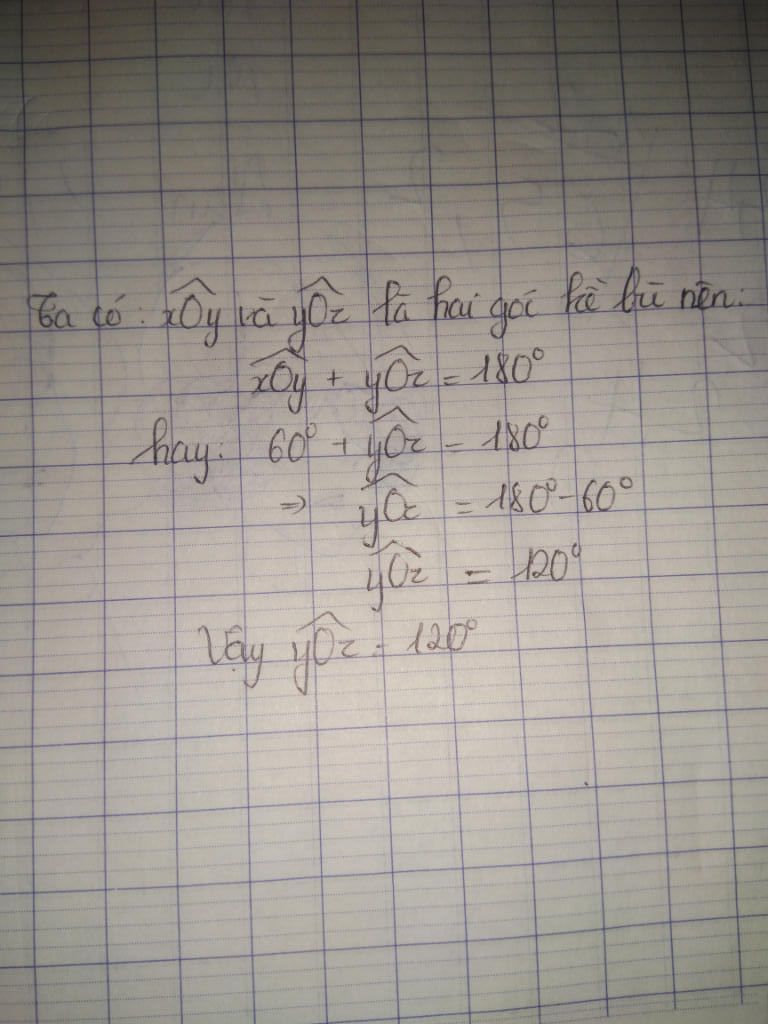 Ta có: xOy và yOz là hai góc kề bù nên:
xOy + yOz = 180°
hay: 60° + yOz = 180°
⇒ yOz = 180° - 60°
yOz = 120°
Vậy yOz = 120°